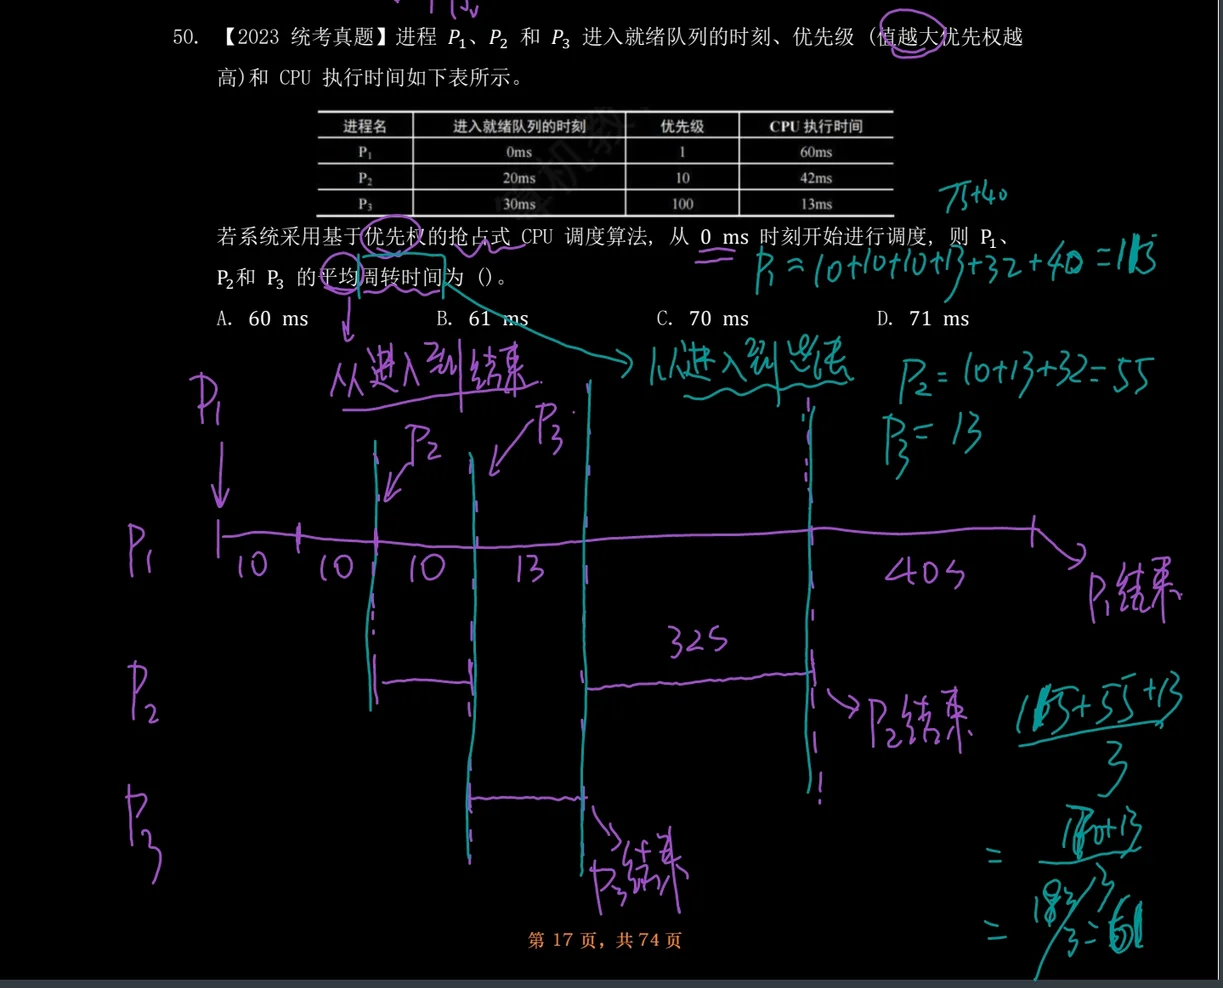 50. 【2023 统考真题】进程 P₁、P₂ 和 P₃ 进入就绪队列的时刻、优先级 (值越大优先权越
高)和 CPU 执行时间如下表所示。
进程名 进入就绪队列的时刻 优先级 CPU 执行时间
P₁ 0ms 1 60ms
P₂ 20ms 10 42ms
P₃ 30ms 100 13ms
75+40
若系统采用基于优先权的抢占式 CPU 调度算法, 从 0 ms 时刻开始进行调度, 则 P₁、
P₂和 P₃ 的平均周转时间为 ()。
P₁ = 10+10+10+13+32+40 = 115
A. 60 ms B. 61 ms C. 70 ms D. 71 ms
从进入到结束
从进入到
P₂ = 10+13+32 = 55
P₃ = 13
P₁
P₂
P₃
P₁
10 10 10 13 40s
P₁结束
32s
P₂
P₂结束
115+55+13
3
P₃
P₃结束
=
3
= 183/3 = 61
第 17 页, 共 74 页